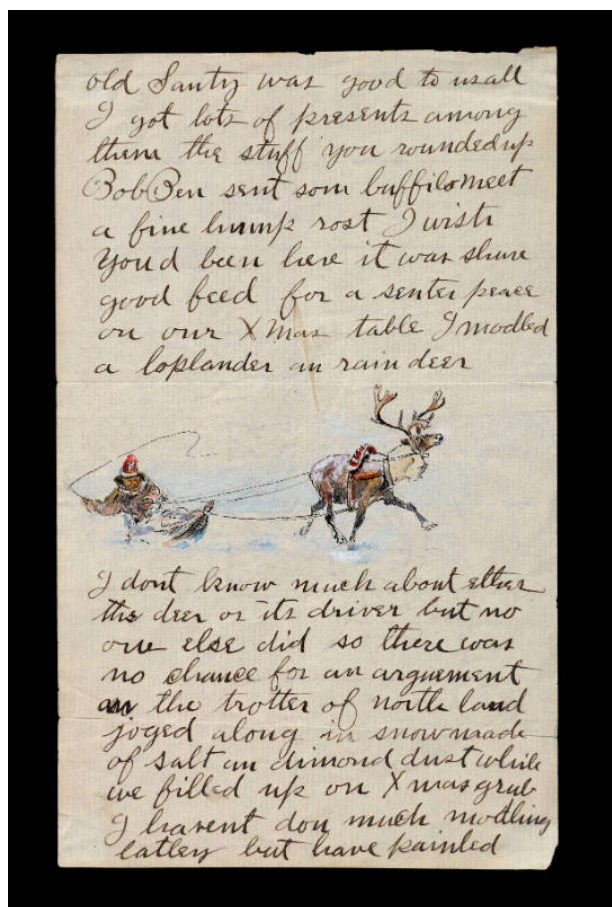 old Santy was good to us all
I got lots of presents among
them the stuff you rounded up
Bob Ben sent som buffilo meet
a fine hump rost I wish
You'd been here it was shure
good feed for a senter peace
on our X Mas table I modled
a loplander an rain deer
I dont know much about ether
the deer or its driver but no
one else did so there was
no chance for an arguement
an the trotter of north land
joged along in snow made
of salt an dimond dust while
we filled up on X mas grub
I havent don much modling
latley but have painted